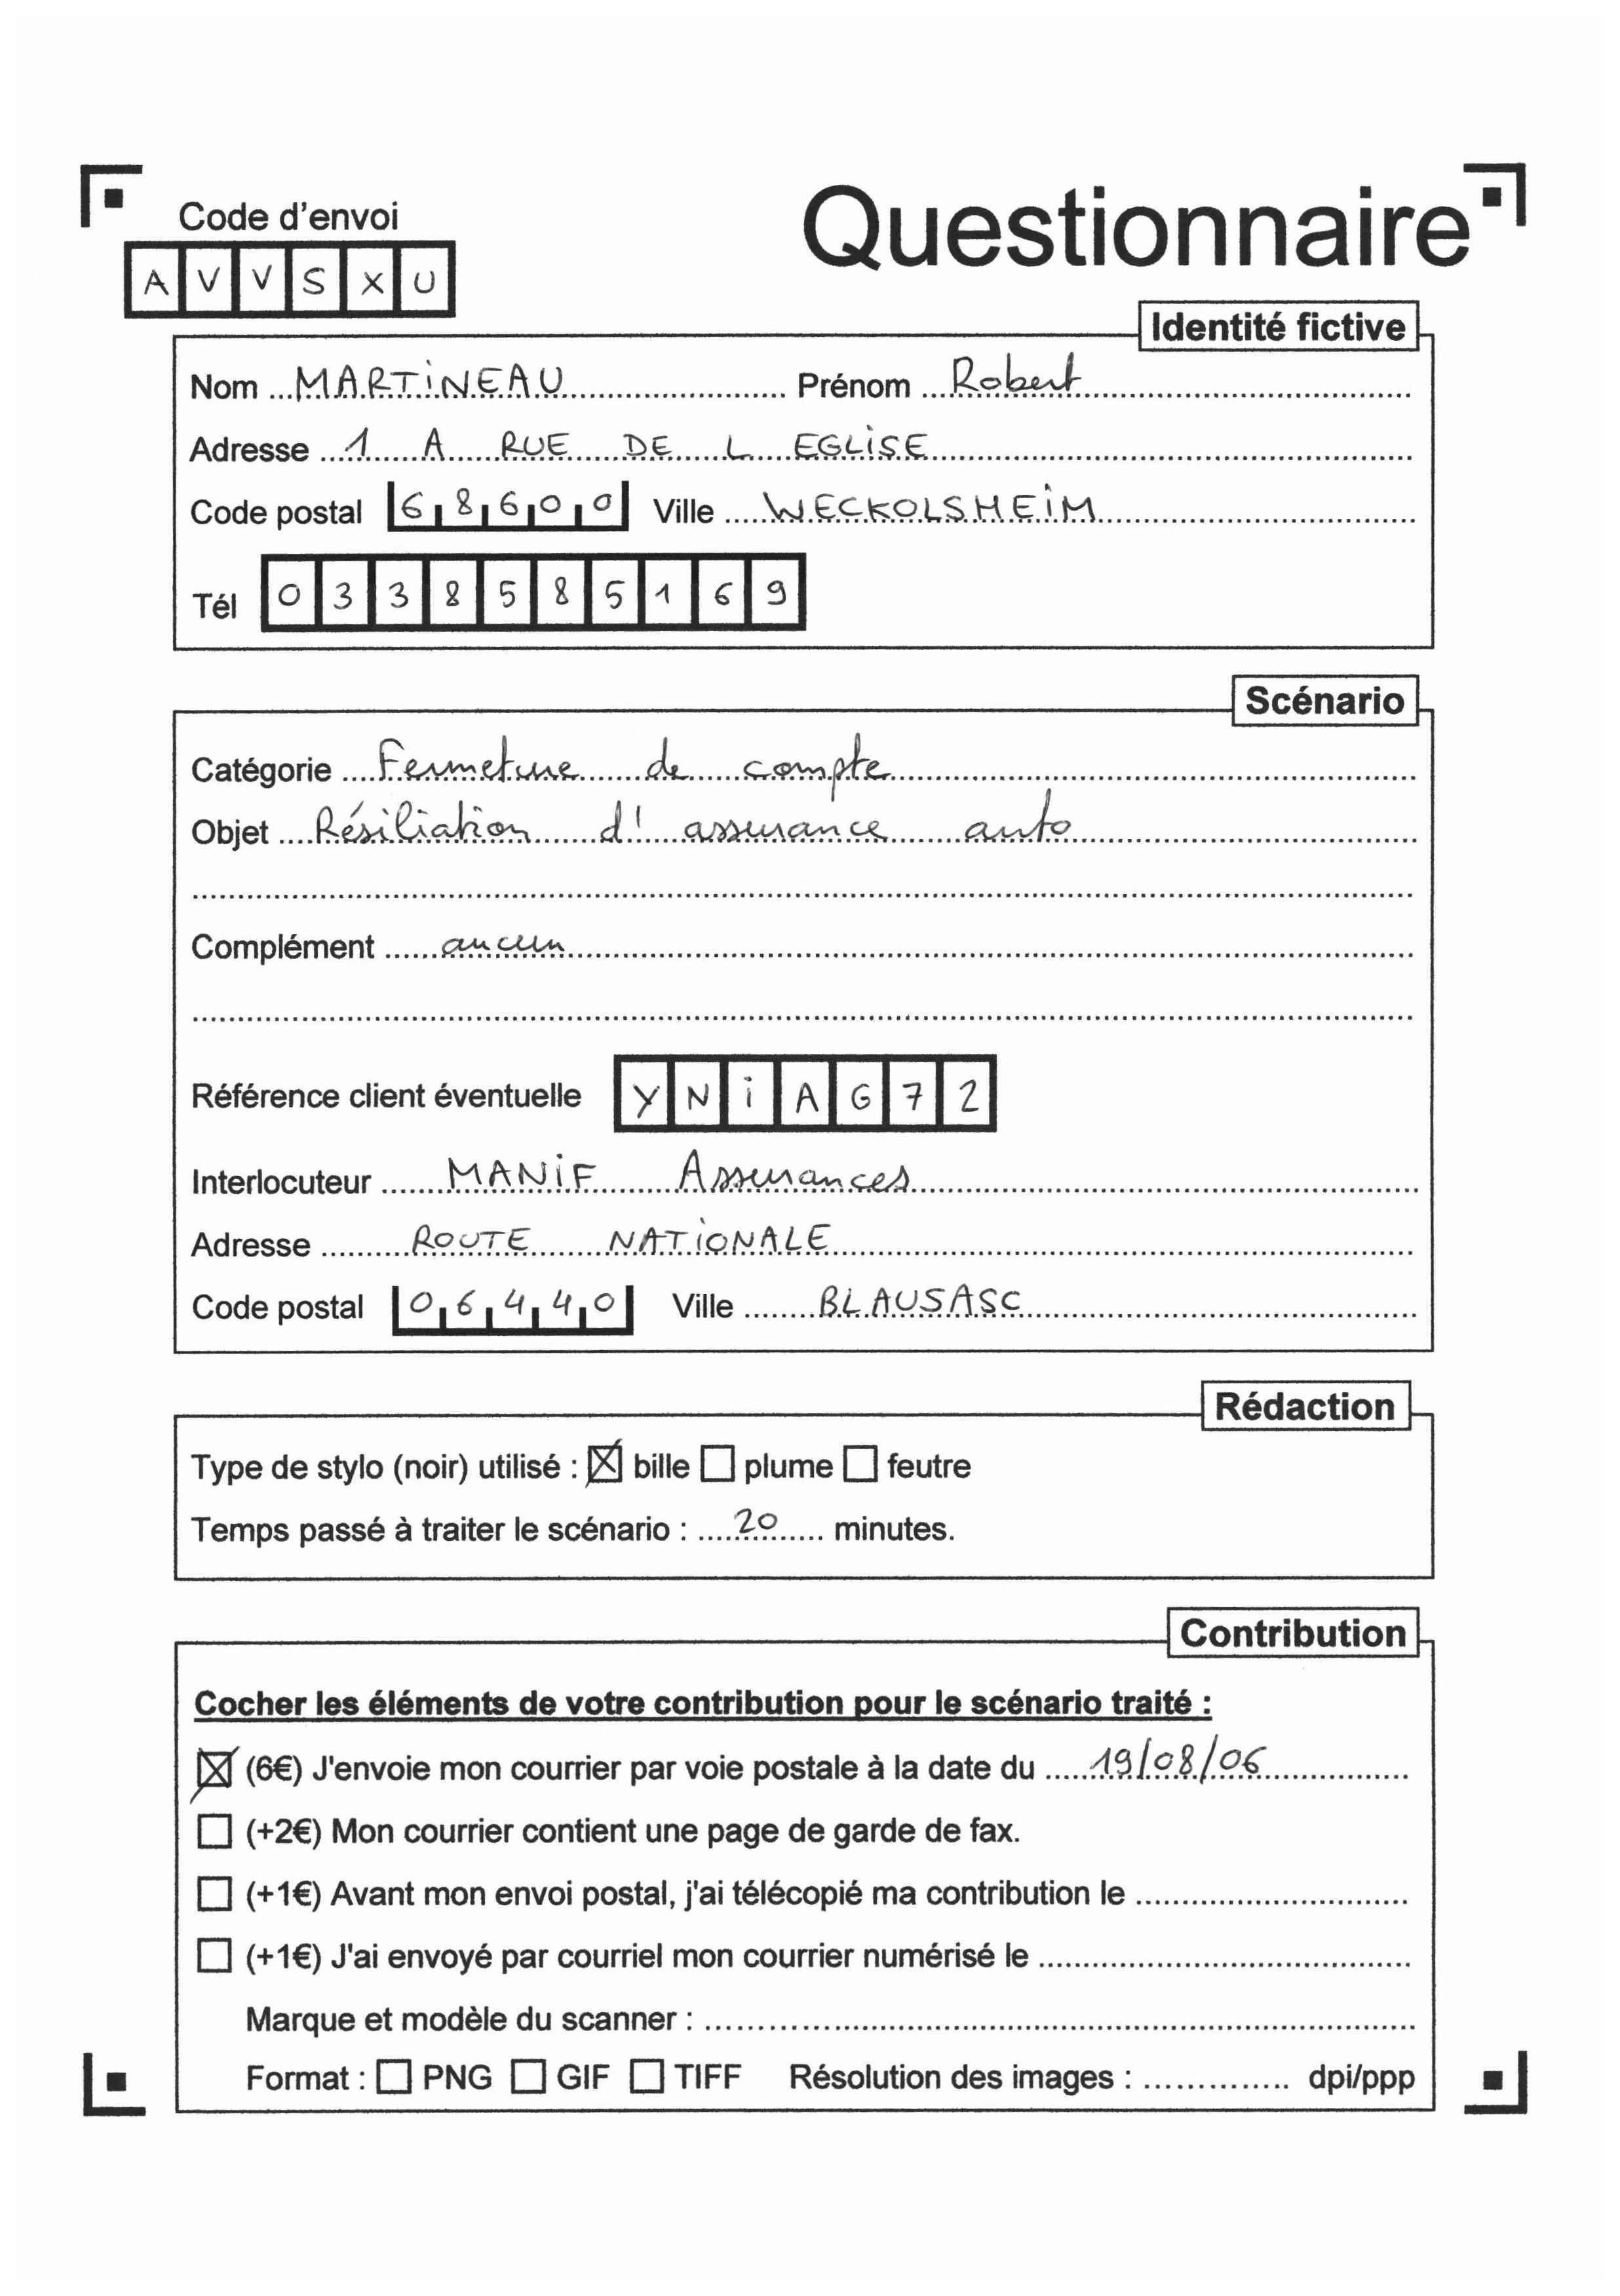 Code d'envoi
Questionnaire
A V V S X U
Identité fictive
Nom MARTINEAU Prénom Robert
Adresse 1 A RUE DE L EGLISE
Code postal 68600 Ville WECKOLSHEIM
Tél 0338585169
Scénario
Catégorie Fermeture de compte
Objet Résiliation d'assurance auto
Complément aucun
Référence client éventuelle YNIAG72
Interlocuteur MANIF Assurances
Adresse ROUTE NATIONALE
Code postal 06440 Ville BLAUSASC
Rédaction
Type de stylo (noir) utilisé : ☒ bille ☐ plume ☐ feutre
Temps passé à traiter le scénario : 20 minutes.
Contribution
Cocher les éléments de votre contribution pour le scénario traité :
☒ (6€) J'envoie mon courrier par voie postale à la date du 19/08/06
☐ (+2€) Mon courrier contient une page de garde de fax.
☐ (+1€) Avant mon envoi postal, j'ai télécopié ma contribution le
☐ (+1€) J'ai envoyé par courriel mon courrier numérisé le
Marque et modèle du scanner :
Format : ☐ PNG ☐ GIF ☐ TIFF Résolution des images : dpi/ppp